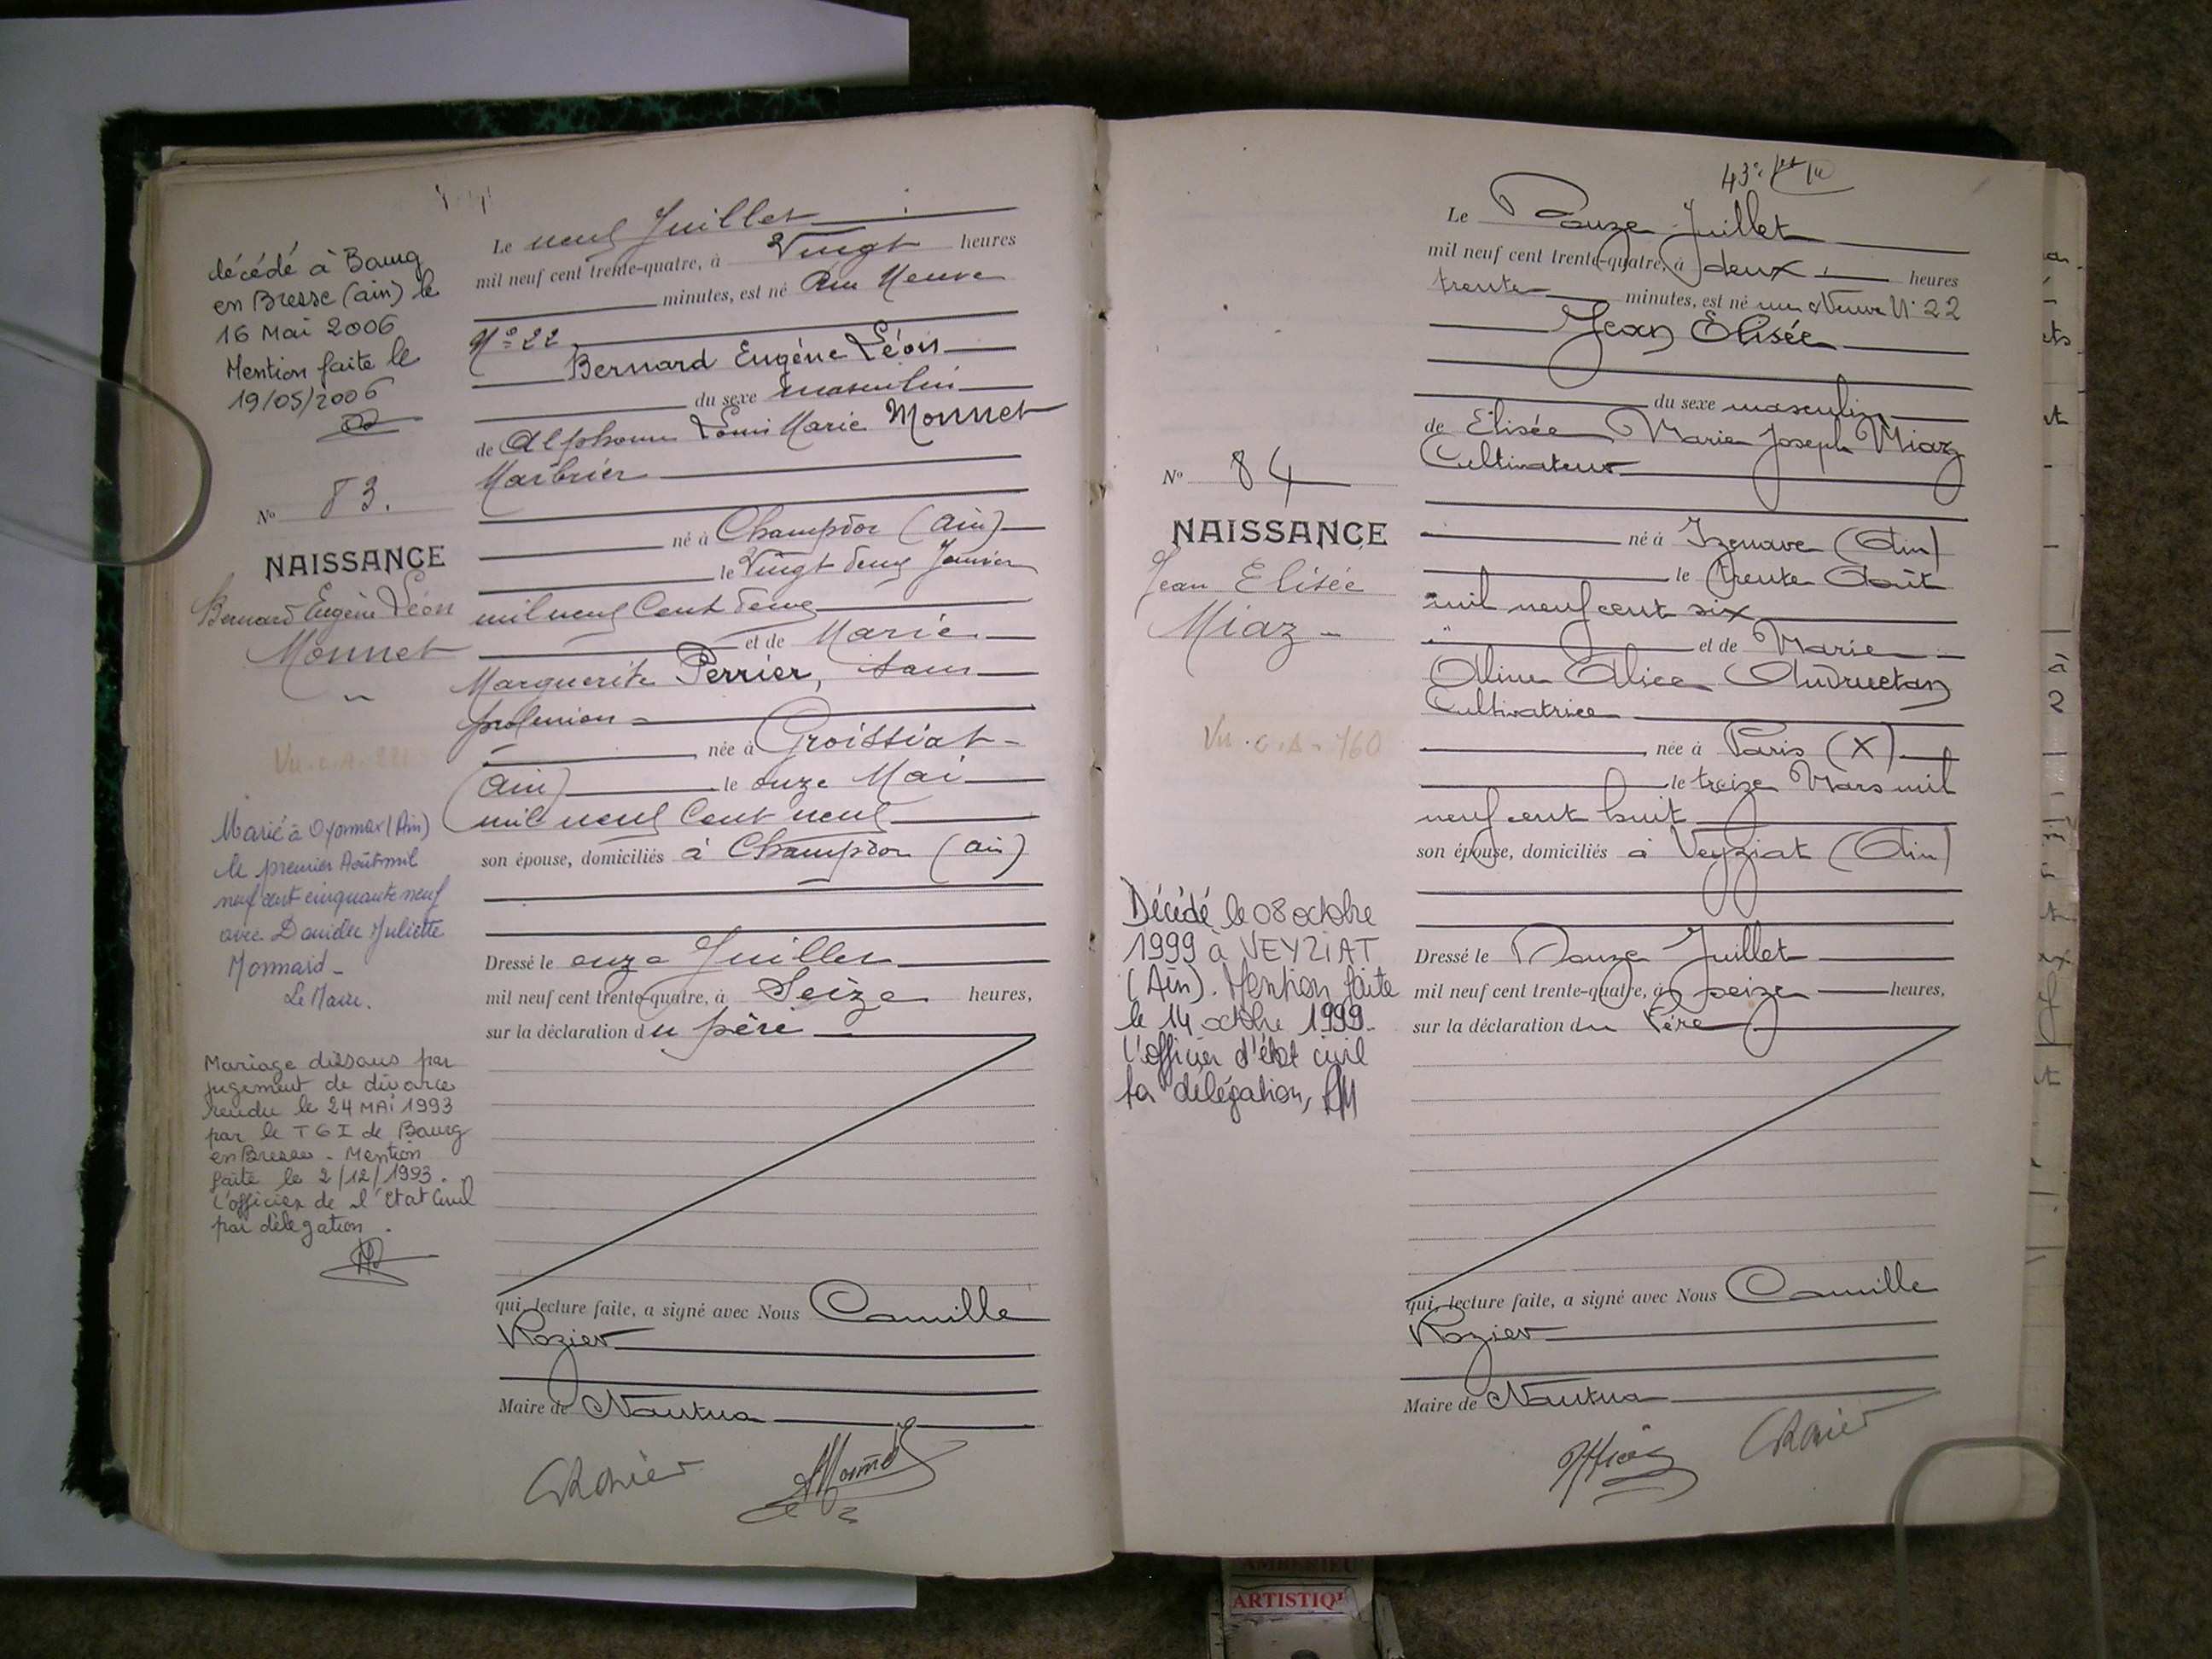 décédé à Bourg
en Bresse (ain) le
16 Mai 2006
Mention faite le
19/05/2006
N° 83.
NAISSANCE
Bernard Eugène Léon
Monnet
Vu. C.A.
Marié à Oyonnax (Ain)
le premier Août mil
neuf cent cinquante neuf
avec Danielle Juliette
Monnard -
Le Maire.
Mariage dissous par
jugement de divorce
rendu le 24 MAI 1993
par le TGI de Bourg
en Bresse - Mention
faite le 2/12/1993.
L'officier de l'Etat Civil
par délegation.
Le neuf Juillet
mil neuf cent trente-quatre, à Vingt heures
minutes, est né Rue Neuve
N° 22
Bernard Eugène Léon
du sexe masculin
de Alphonse Louis Marie Monnet
Marbrier
né à Champdor (Ain)
le Vingt deux Janvier
mil neuf Cent deux
et de Marie
Marguerite Perrier, sans
profession
née à Groissiat -
(Ain) le onze Mai
mil neuf Cent neuf
son épouse, domiciliés à Champdor (Ain)
Dressé le onze Juillet
mil neuf cent trente-quatre, à Seize heures,
sur la déclaration du père
qui, lecture faite, a signé avec Nous Camille
Rozier
Maire de Nantua
CRozier
AMonnet
N° 84
NAISSANCE
Jean Elisée
Miaz -
Vu. C.A. 160
Décédé le 08 octobre
1999 à VEYZIAT
(Ain). Mention faite
le 14 octobre 1999.
L'officier d'état civil
délégation,
43e
Le Douze Juillet
mil neuf cent trente-quatre, à deux heures
trente minutes, est né rue Neuve N° 22
Jean Elisée
du sexe masculin
de Elisée Marie Joseph Miaz
Cultivateur
né à Izenave (Ain)
le trente Août
mil neuf cent six
et de Marie
Aline Alice Andruetan
Cultivatrice
née à Paris (X)
le treize Mars mil
neuf cent huit
son épouse, domiciliés à Veyziat (Ain)
Dressé le Douze Juillet
mil neuf cent trente-quatre, à seize heures,
sur la déclaration du Père
qui, lecture faite, a signé avec Nous Camille
Rozier
Maire de Nantua
CRozier
ARTISTIQ